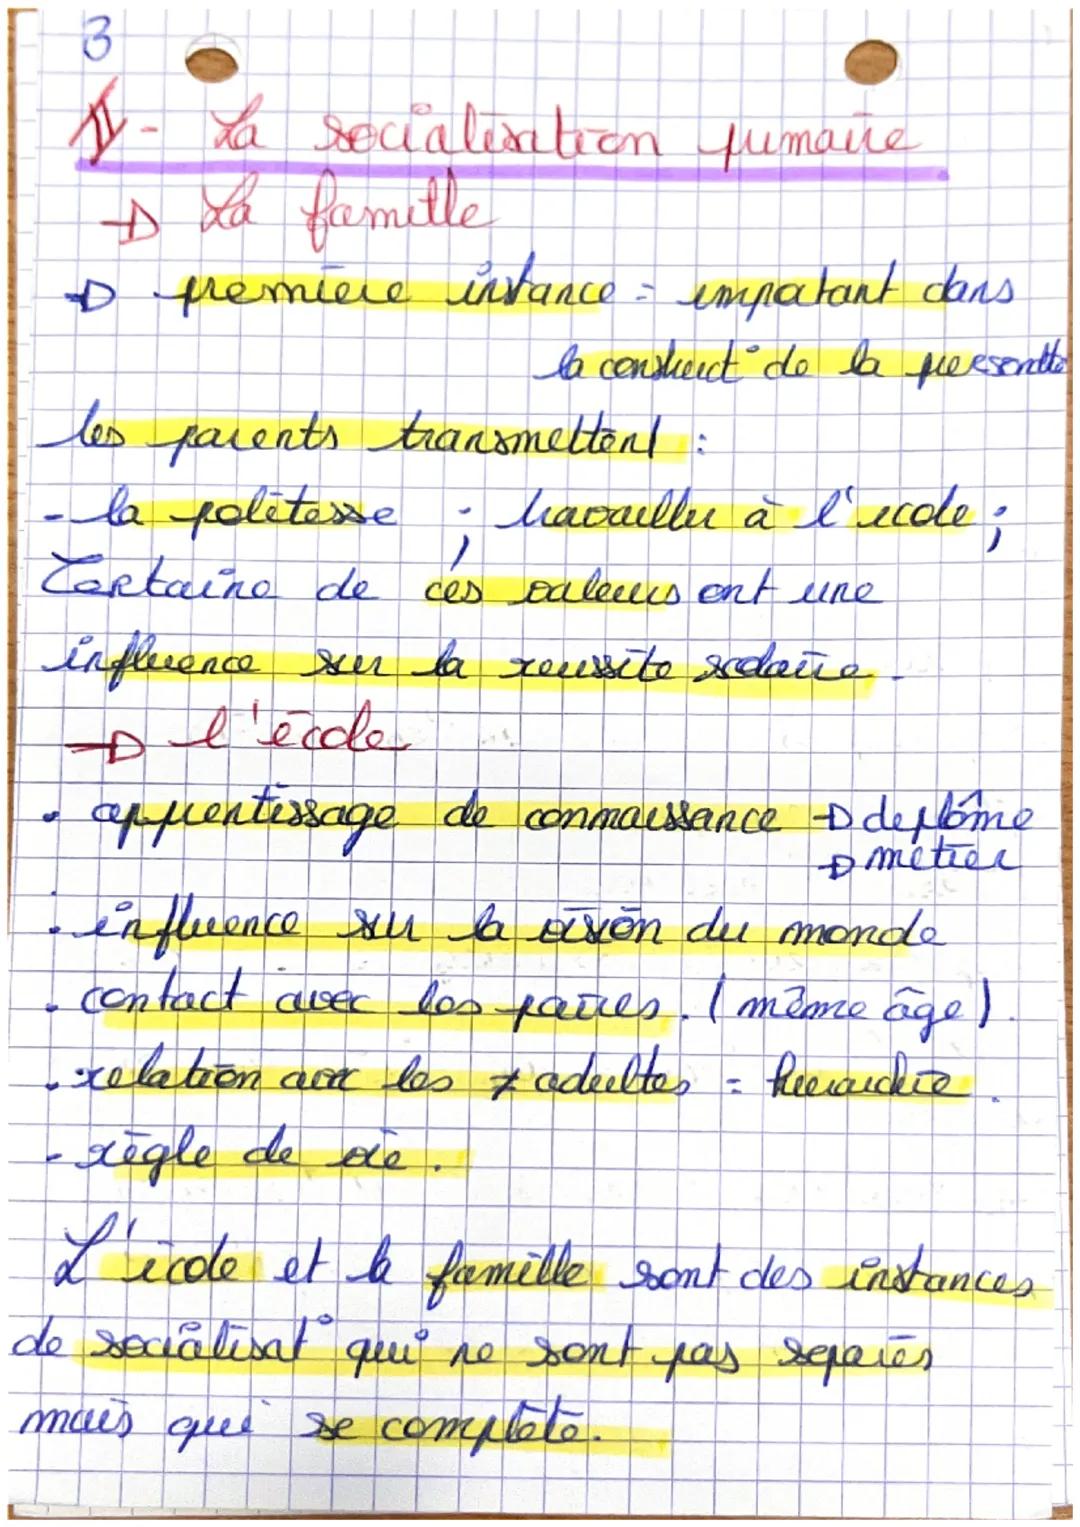 3
- La socialisation primaire
→ La famille
→ première instance = important dans
la construct° de la personnalité
les parents transmettent :
- la politesse ; travailler à l'école ;
Certaine de ces valeurs ont une
influence sur la reussite scolaire.
→ l'école
• apprentissage de connaissance → diplôme
→ métier
• influence sur la vision du monde
• contact avec les paires. (même âge).
• relation avec les ≠ adultes = hierarchie.
- règle de vie.
L'école et la famille sont des instances
de socialisat° qui ne sont pas séparés
mais qui se complète.